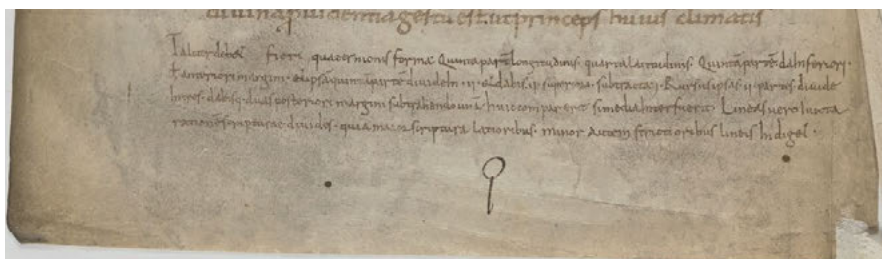 diuina prudentia gestu est. ut princeps huius climatis
Taliter debet fieri quaternionis forma. Quinta parte longitudinis. quarta latitudinis. Quintā partē da inferiori.
& anteriori margini. & ipsā quintā partē diuide in .ii. & dabis .ii superiori. subtracta .i. Rursus ipsas .ii. partes diuide
in tres. dabisq; duas posteriori margini subtrahendo unā. huic compar erit si media interfuerit. Lineas uero iuxta
rationē scripturae diuides. quia maior scriptura latioribus. minor autem strictioribus lineis indiget.